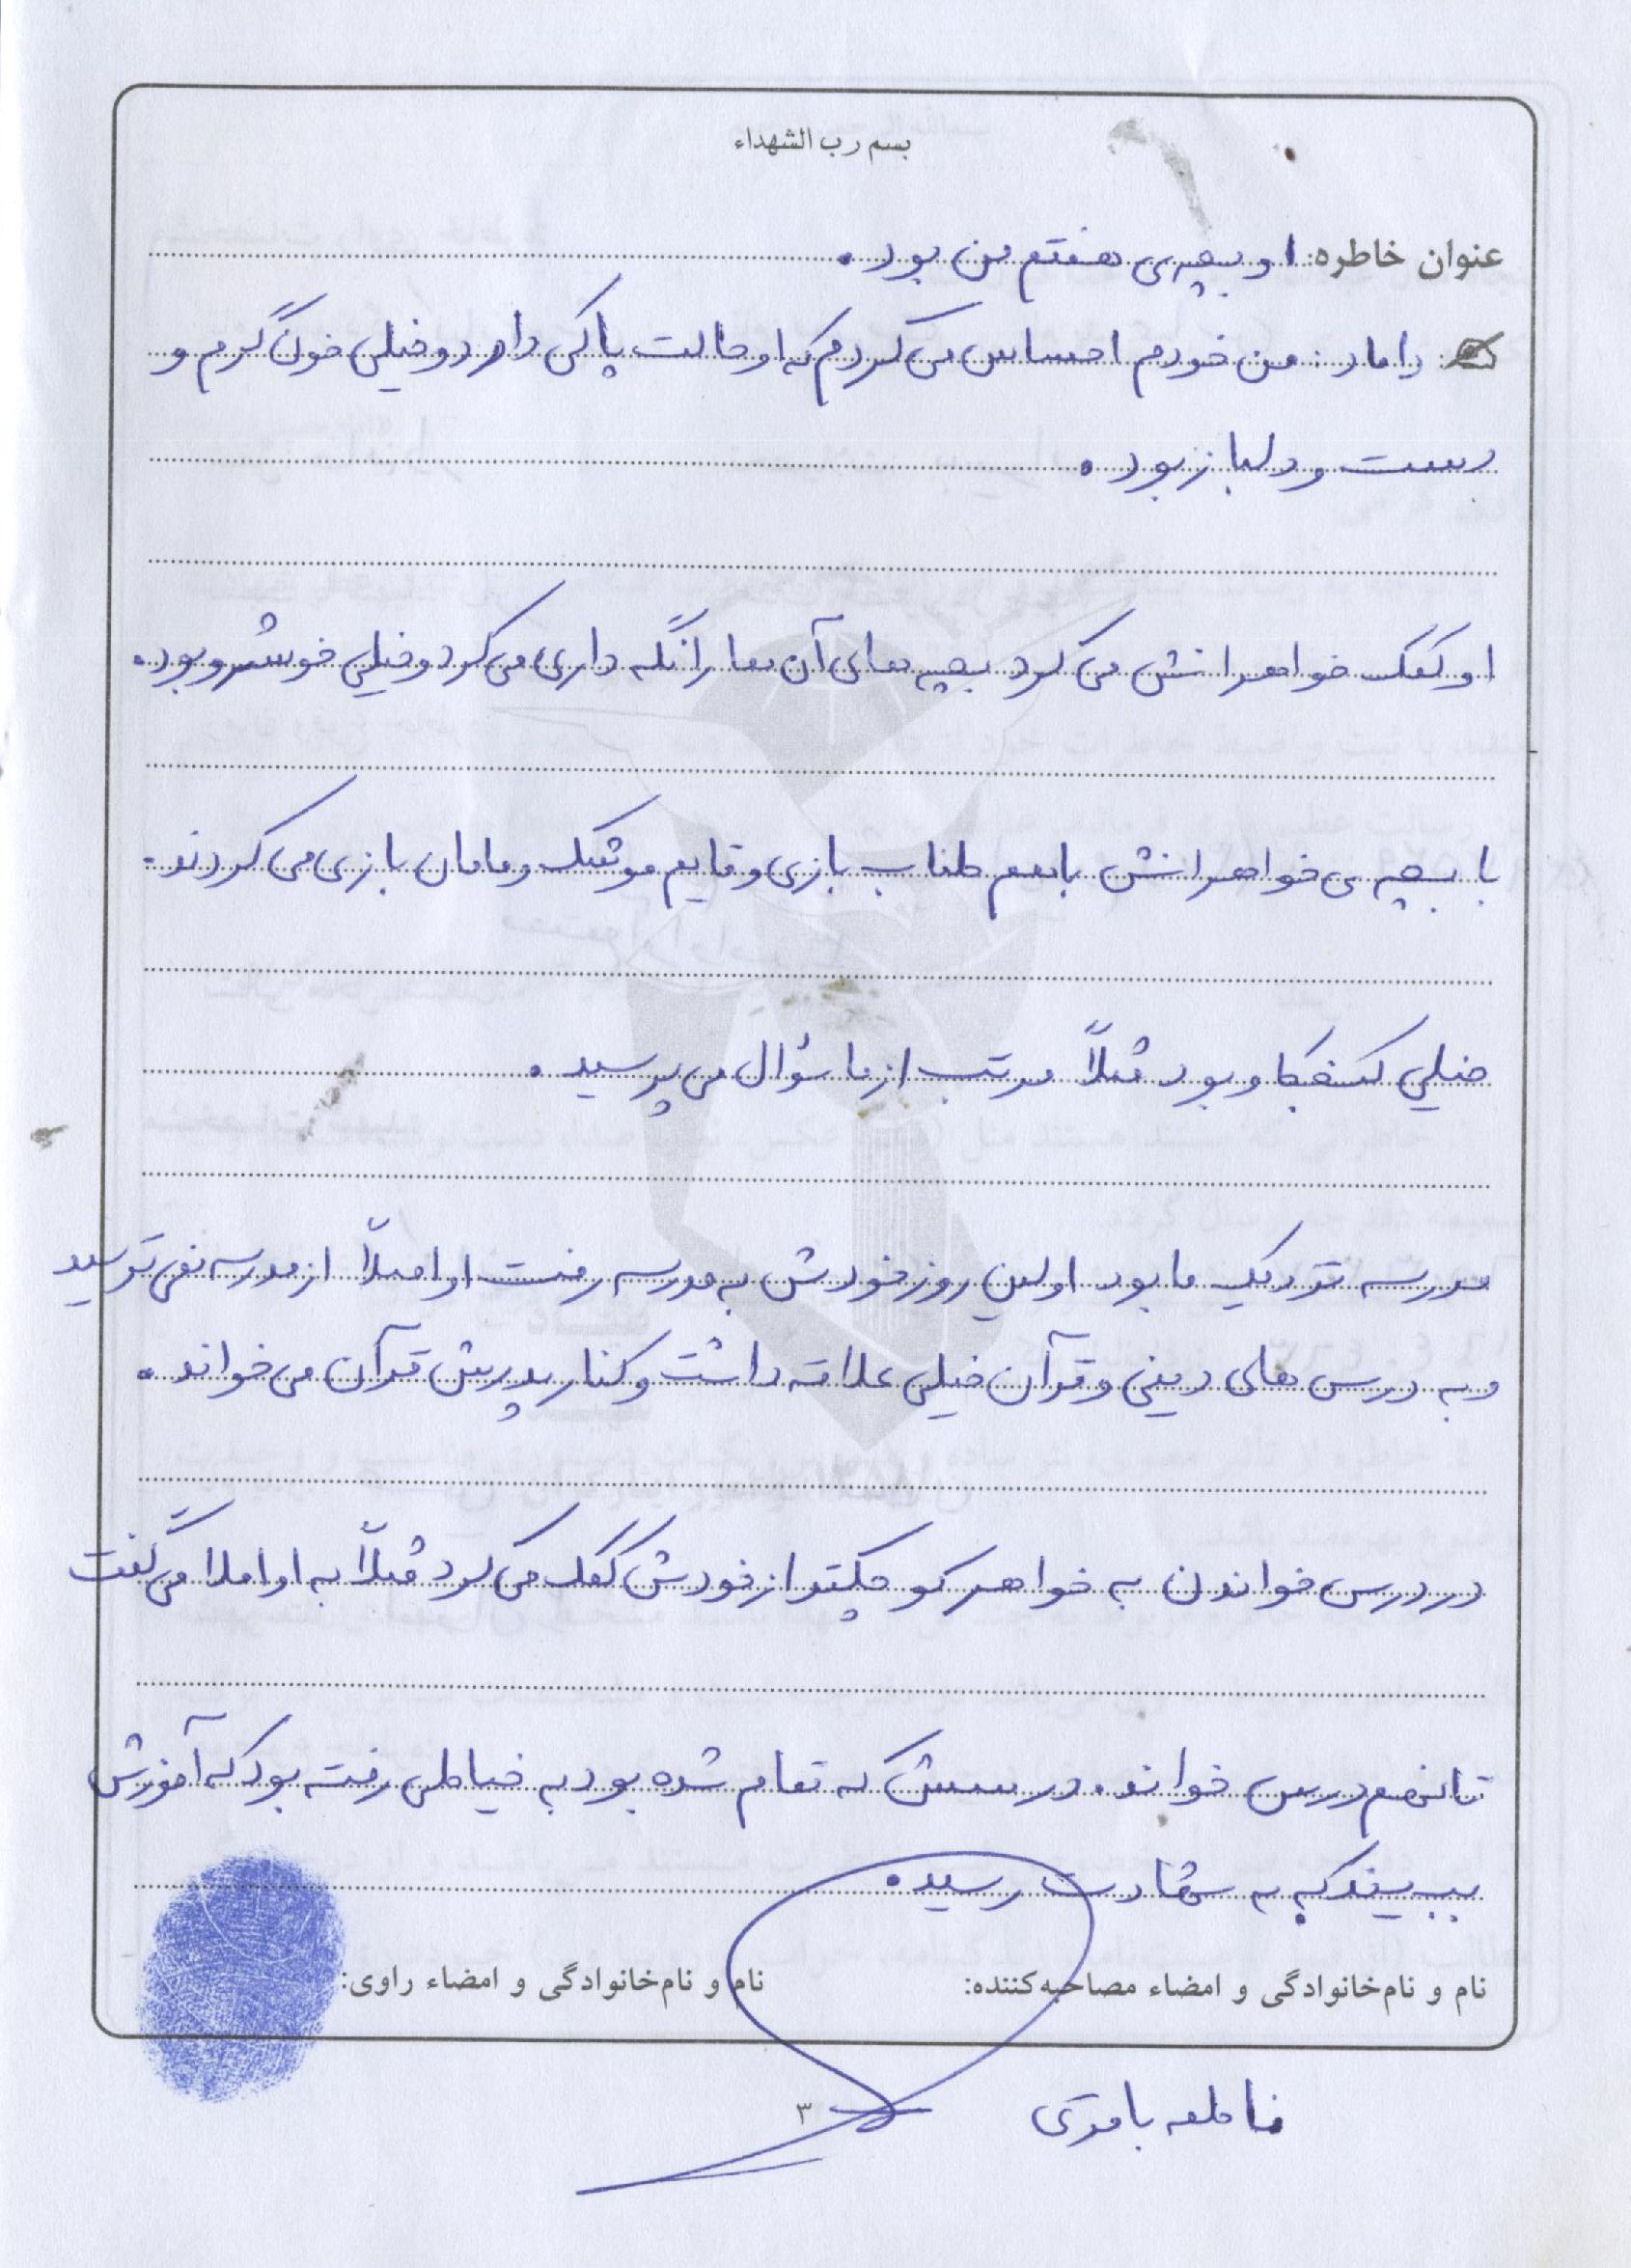 بسم رب الشهداء
عنوان خاطره: او بچه‌ی هفتم من بود.
داماد: من خودم احساس می کردم که او حالت پاکی دارد و خیلی خون گرم و
دست و دلباز بود.
او کمک خواهرانش می کرد بچه های آن ها را نگه داری می کرد و خیلی خوشرو بود.
با بچه ی خواهرانش باهم طناب بازی و قایم موشک و مامان بازی می کردند.
خیلی کنجکاو بود مثلاً مرتب از ما سؤال می پرسید.
مدرسه نزدیک ما بود اولین روز خودش به مدرسه رفت او اصلاً از مدرسه نمی ترسید
و به درس های دینی و قرآن خیلی علاقه داشت و کنار پدرش قرآن می خواند.
در درس خواندن به خواهر کوچکتر از خودش کمک می کرد مثلاً به او املا می گفت
تا نهم درس خواند. درسش که تمام شده بود به خیاطی رفته بود که آموزش
ببیند که به شهادت رسید.
نام و نام‌خانوادگی و امضاء مصاحبه‌کننده:
نام و نام‌خانوادگی و امضاء راوی:
فاطمه
۳